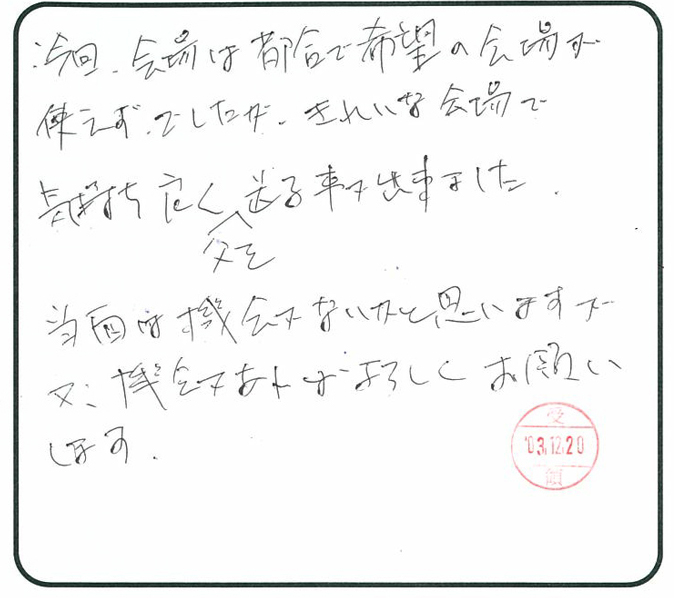 今回、会場は都合で希望の会場が
使えず、でしたが、きれいな会場で
気持ち良く送る事が出来ました。
父を
当面は機会がないかと思いますが
又、機会があればよろしくお願い
します。
受
'03.12.20
領